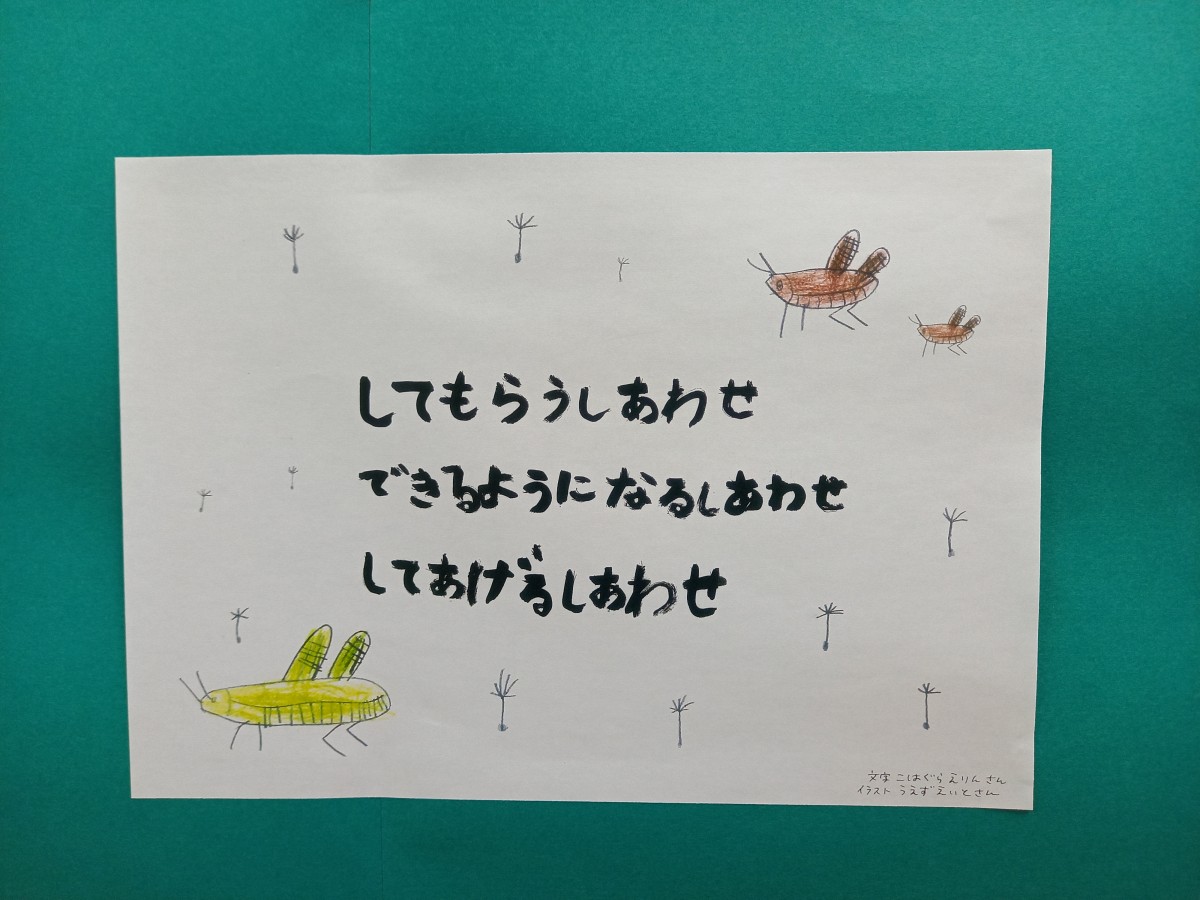 してもらうしあわせ
できるようになるしあわせ
してあげるしあわせ
文字 こはぐら えりん さん
イラスト うえず えいと さん